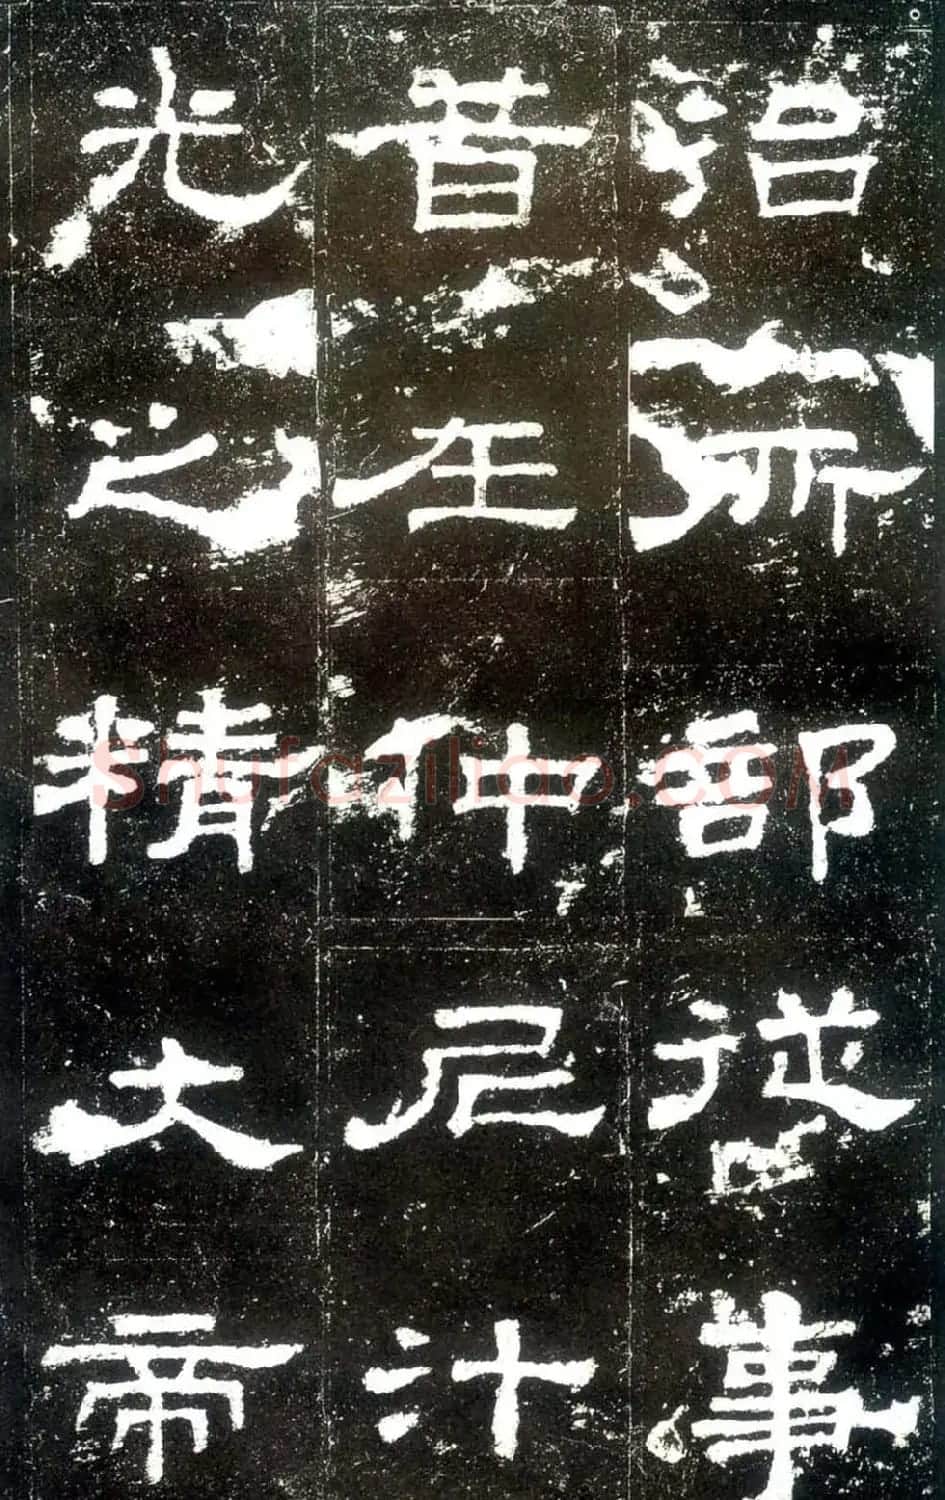 治所部從事
昔在仲尼汁
光之精大帝
Shufaziliao.COM